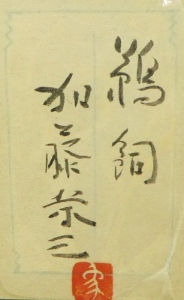 鵜飼
加藤栄三